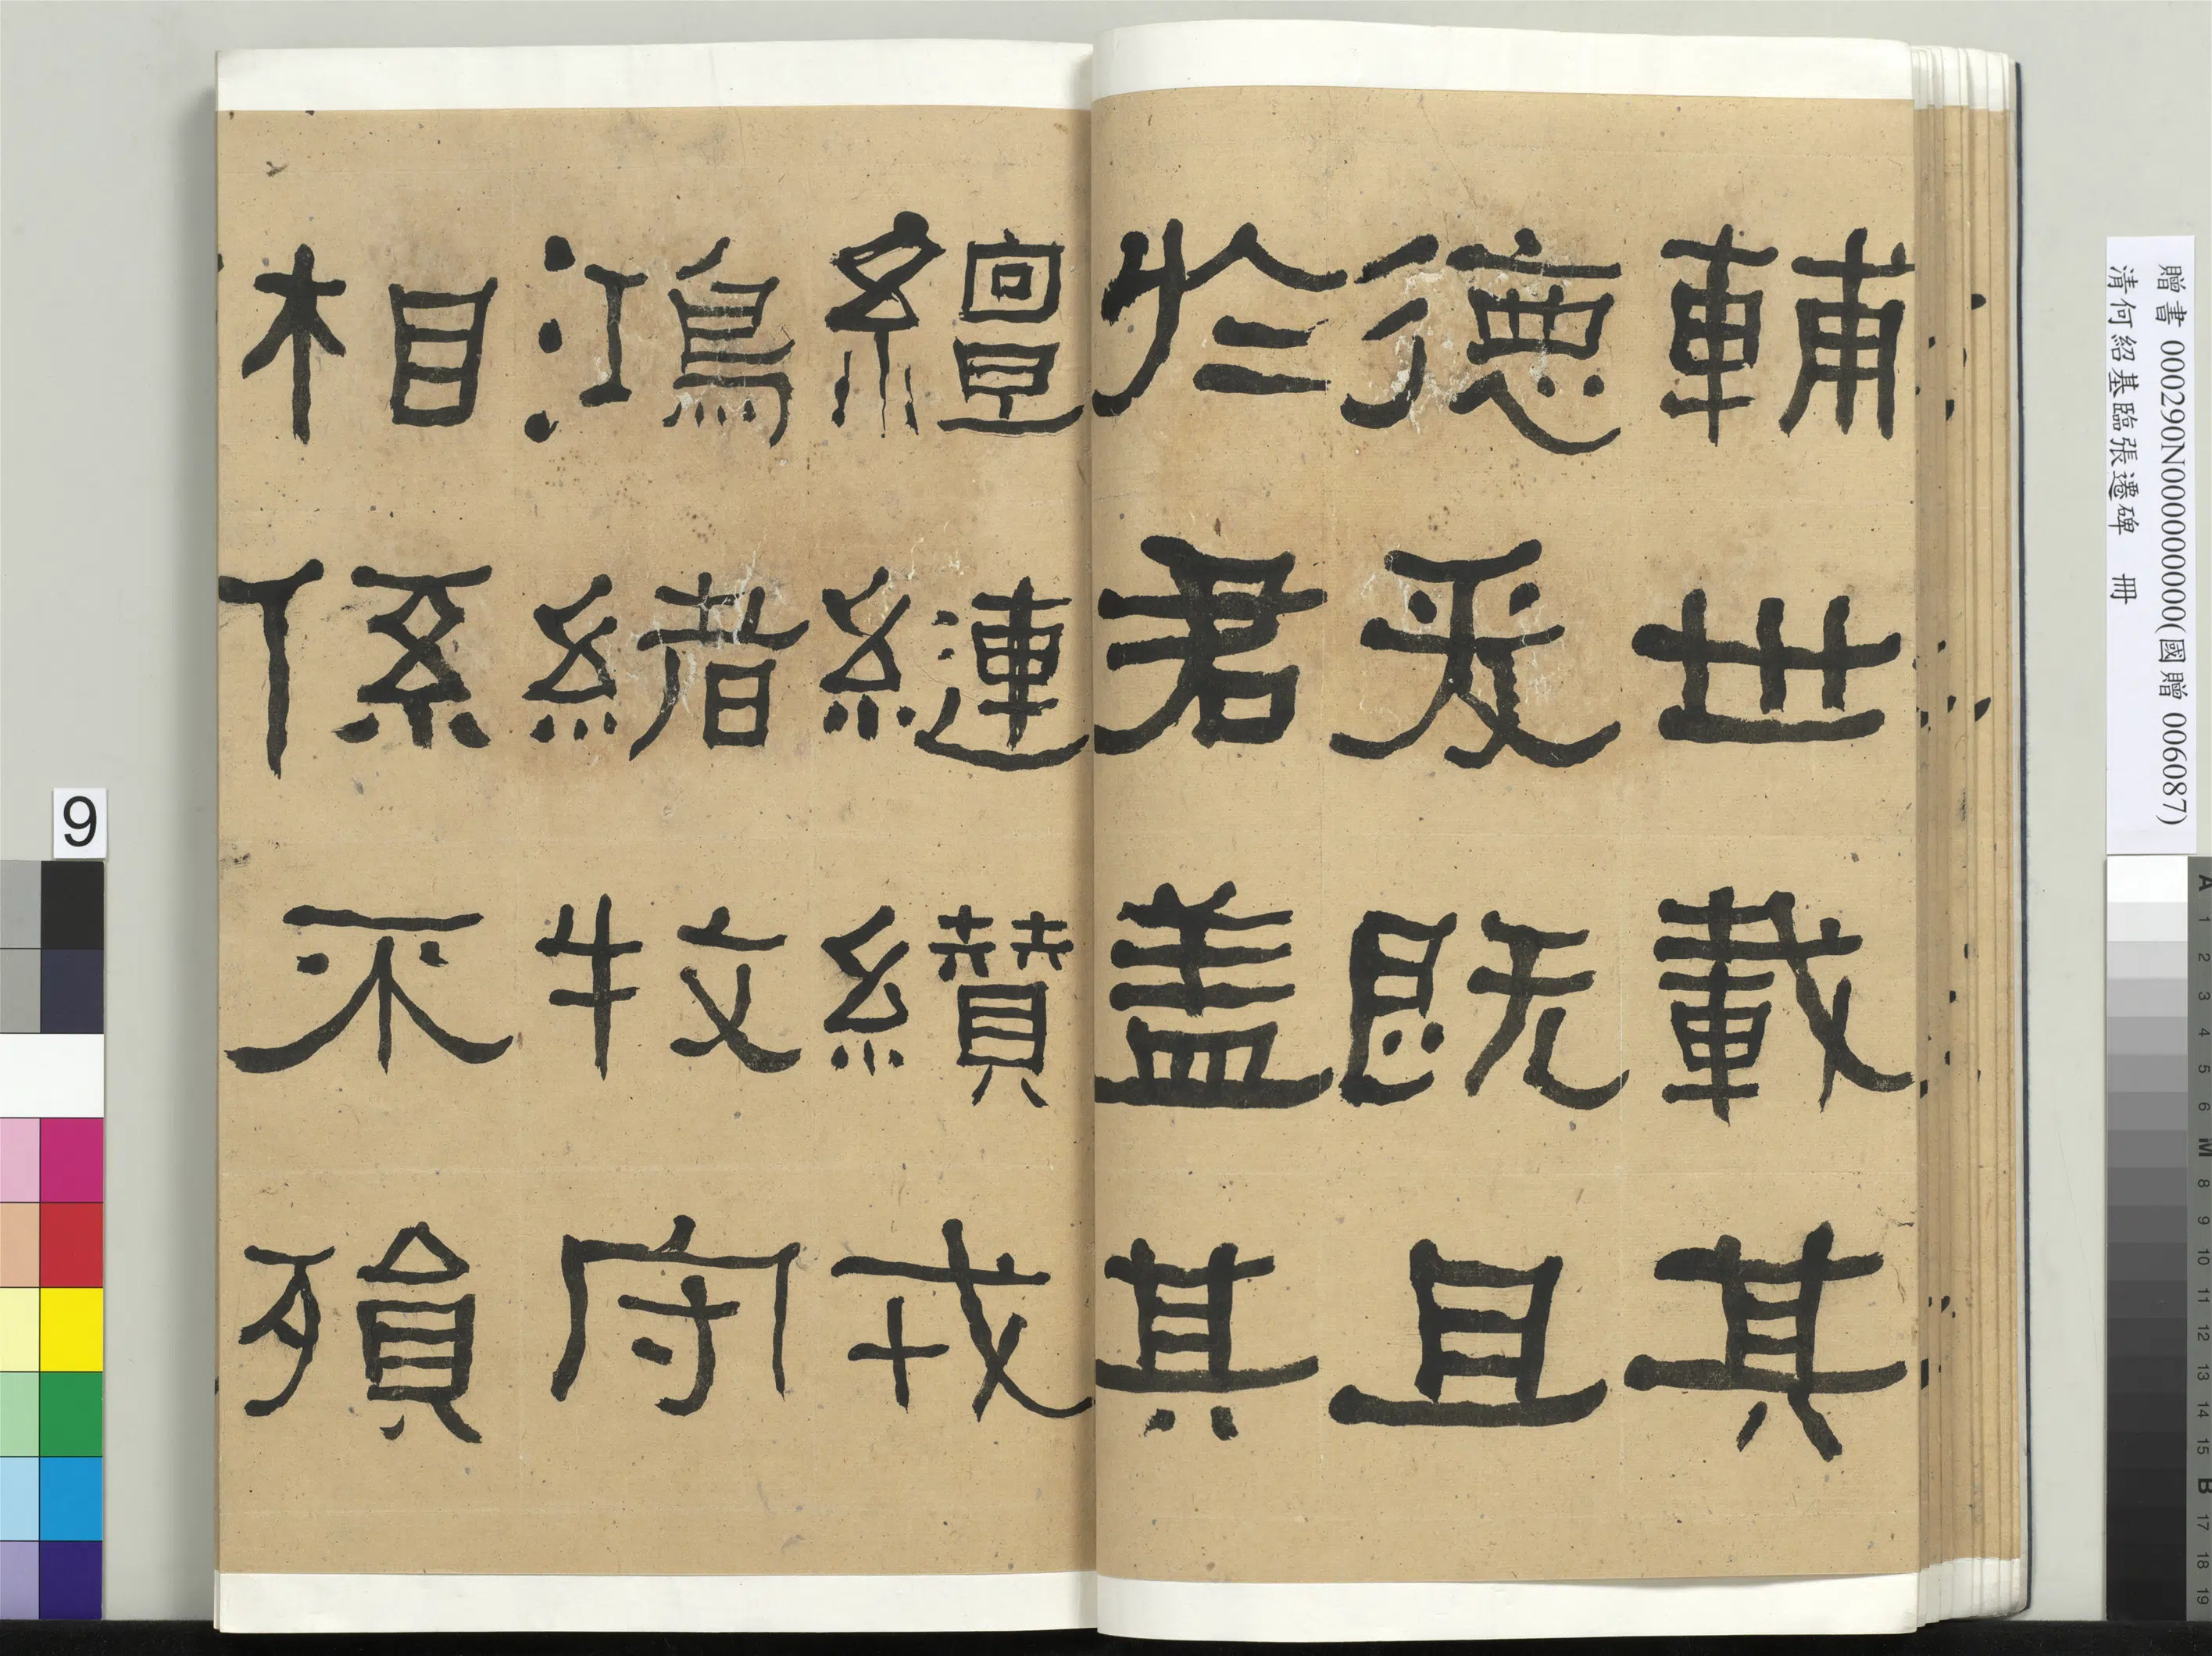 輔世載其
德爰既且
於君盖其
繵縺纘戎
鴻緒牧守
相係不殞
贈書 000290N000000000(國贈 006087)
清何紹基臨張遷碑 冊
9
A 1 2 3 4 5 6 M 8 9 10 11 12 13 14 15 B 17 18 19